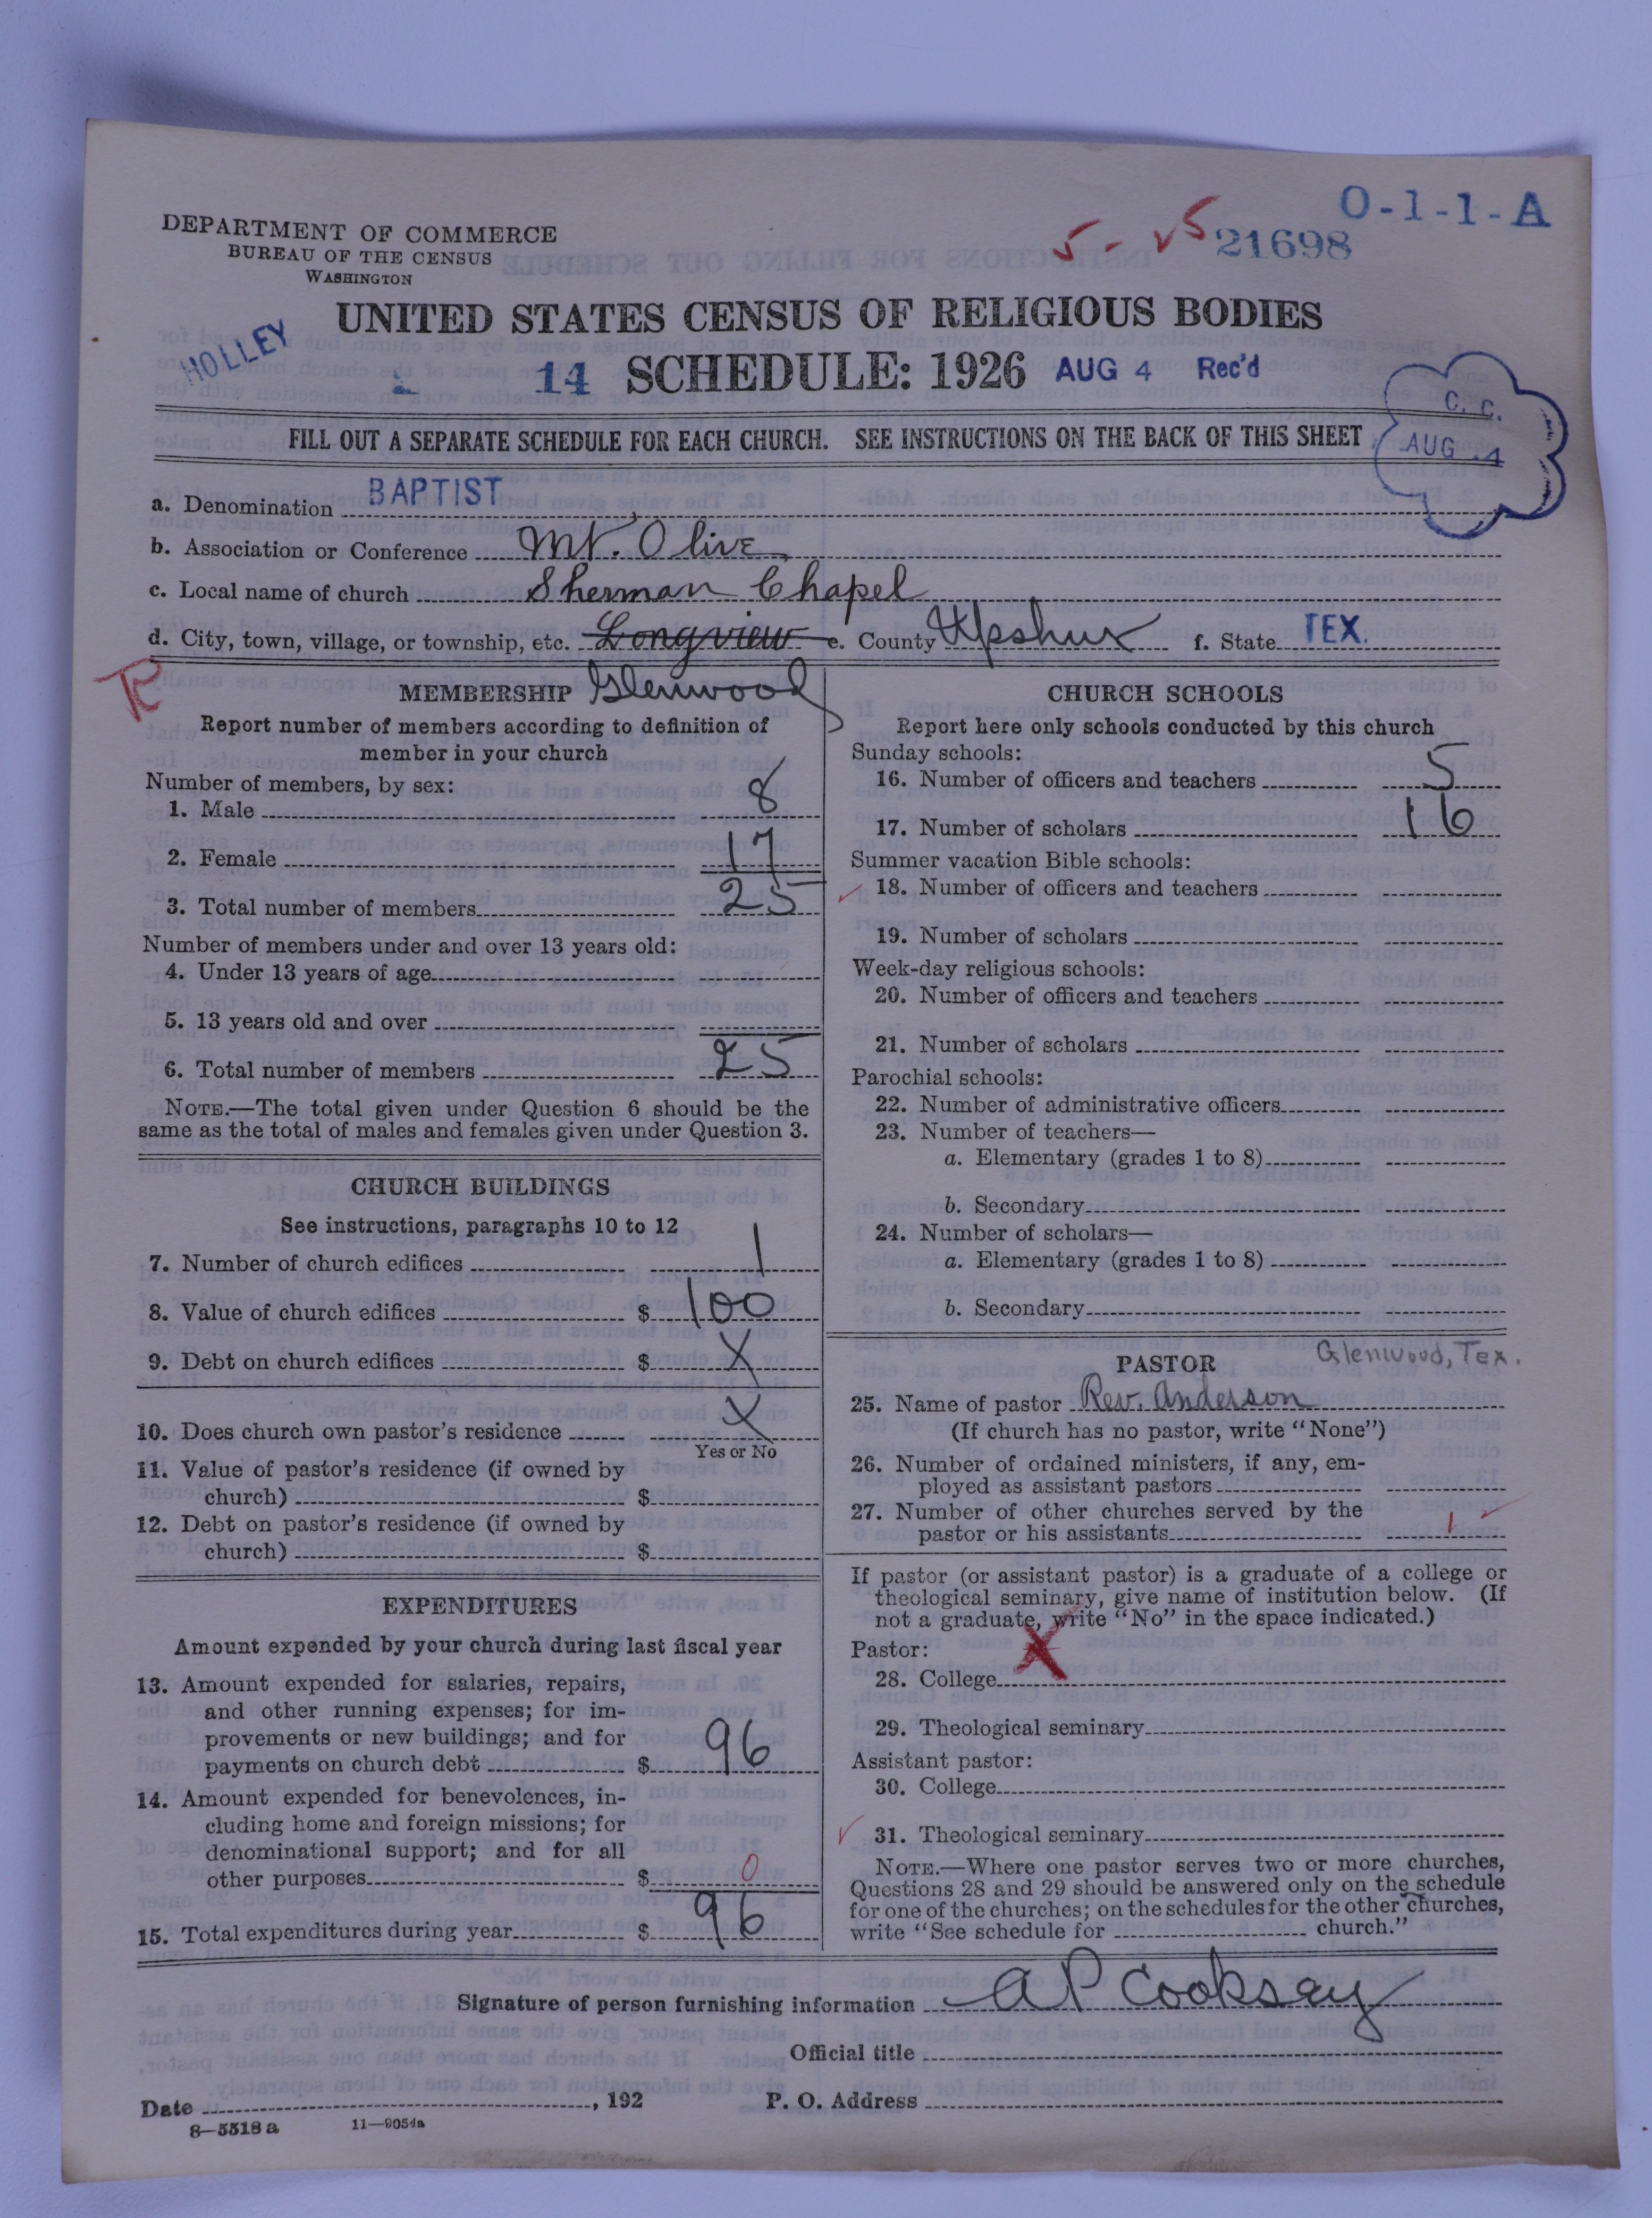 O-1-1-A
5-25 21698
DEPARTMENT OF COMMERCE
BUREAU OF THE CENSUS
WASHINGTON
UNITED STATES CENSUS OF RELIGIOUS BODIES
HOLLEY
14 SCHEDULE: 1926 AUG 4 Rec'd
C. C.
AUG 4
FILL OUT A SEPARATE SCHEDULE FOR EACH CHURCH. SEE INSTRUCTIONS ON THE BACK OF THIS SHEET
a. Denomination BAPTIST
b. Association or Conference Mt. Olive
c. Local name of church Sherman Chapel
d. City, town, village, or township, etc. Longview e. County Upshur f. State TEX.
R
MEMBERSHIP Glenwood
Report number of members according to definition of
member in your church
Number of members, by sex:
1. Male 8
2. Female 17
3. Total number of members 25
Number of members under and over 13 years old:
4. Under 13 years of age
5. 13 years old and over
6. Total number of members 25
NOTE.—The total given under Question 6 should be the
same as the total of males and females given under Question 3.
CHURCH BUILDINGS
See instructions, paragraphs 10 to 12
7. Number of church edifices 1
8. Value of church edifices $ 100
9. Debt on church edifices $ X
10. Does church own pastor's residence X
Yes or No
11. Value of pastor's residence (if owned by
church) $
12. Debt on pastor's residence (if owned by
church) $
EXPENDITURES
Amount expended by your church during last fiscal year
13. Amount expended for salaries, repairs,
and other running expenses; for im-
provements or new buildings; and for
payments on church debt $ 96
14. Amount expended for benevolences, in-
cluding home and foreign missions; for
denominational support; and for all
other purposes $ 0
15. Total expenditures during year $ 96
CHURCH SCHOOLS
Report here only schools conducted by this church
Sunday schools:
16. Number of officers and teachers 5
17. Number of scholars 16
Summer vacation Bible schools:
18. Number of officers and teachers
19. Number of scholars
Week-day religious schools:
20. Number of officers and teachers
21. Number of scholars
Parochial schools:
22. Number of administrative officers
23. Number of teachers—
a. Elementary (grades 1 to 8)
b. Secondary
24. Number of scholars—
a. Elementary (grades 1 to 8)
b. Secondary
PASTOR Glenwood, Tex.
25. Name of pastor Rev. Anderson
(If church has no pastor, write "None")
26. Number of ordained ministers, if any, em-
ployed as assistant pastors
27. Number of other churches served by the
pastor or his assistants 1
If pastor (or assistant pastor) is a graduate of a college or
theological seminary, give name of institution below. (If
not a graduate, write "No" in the space indicated.)
Pastor: X
28. College
29. Theological seminary
Assistant pastor:
30. College
31. Theological seminary
NOTE.—Where one pastor serves two or more churches,
Questions 28 and 29 should be answered only on the schedule
for one of the churches; on the schedules for the other churches,
write "See schedule for church."
Signature of person furnishing information A P Cooksey
Official title
Date , 192 P. O. Address
8—5518 a 11—9054a